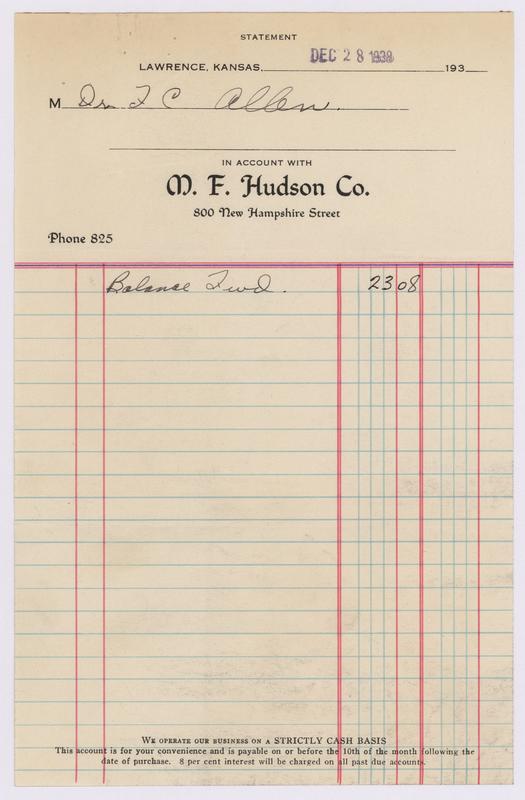 STATEMENT
LAWRENCE, KANSAS, DEC 28 1938 193
M Dr. F C Allen.
IN ACCOUNT WITH
M. F. Hudson Co.
800 New Hampshire Street
Phone 825
Balance Fwd. 23 08
WE OPERATE OUR BUSINESS ON A STRICTLY CASH BASIS
This account is for your convenience and is payable on or before the 10th of the month following the
date of purchase. 8 per cent interest will be charged on all past due accounts.